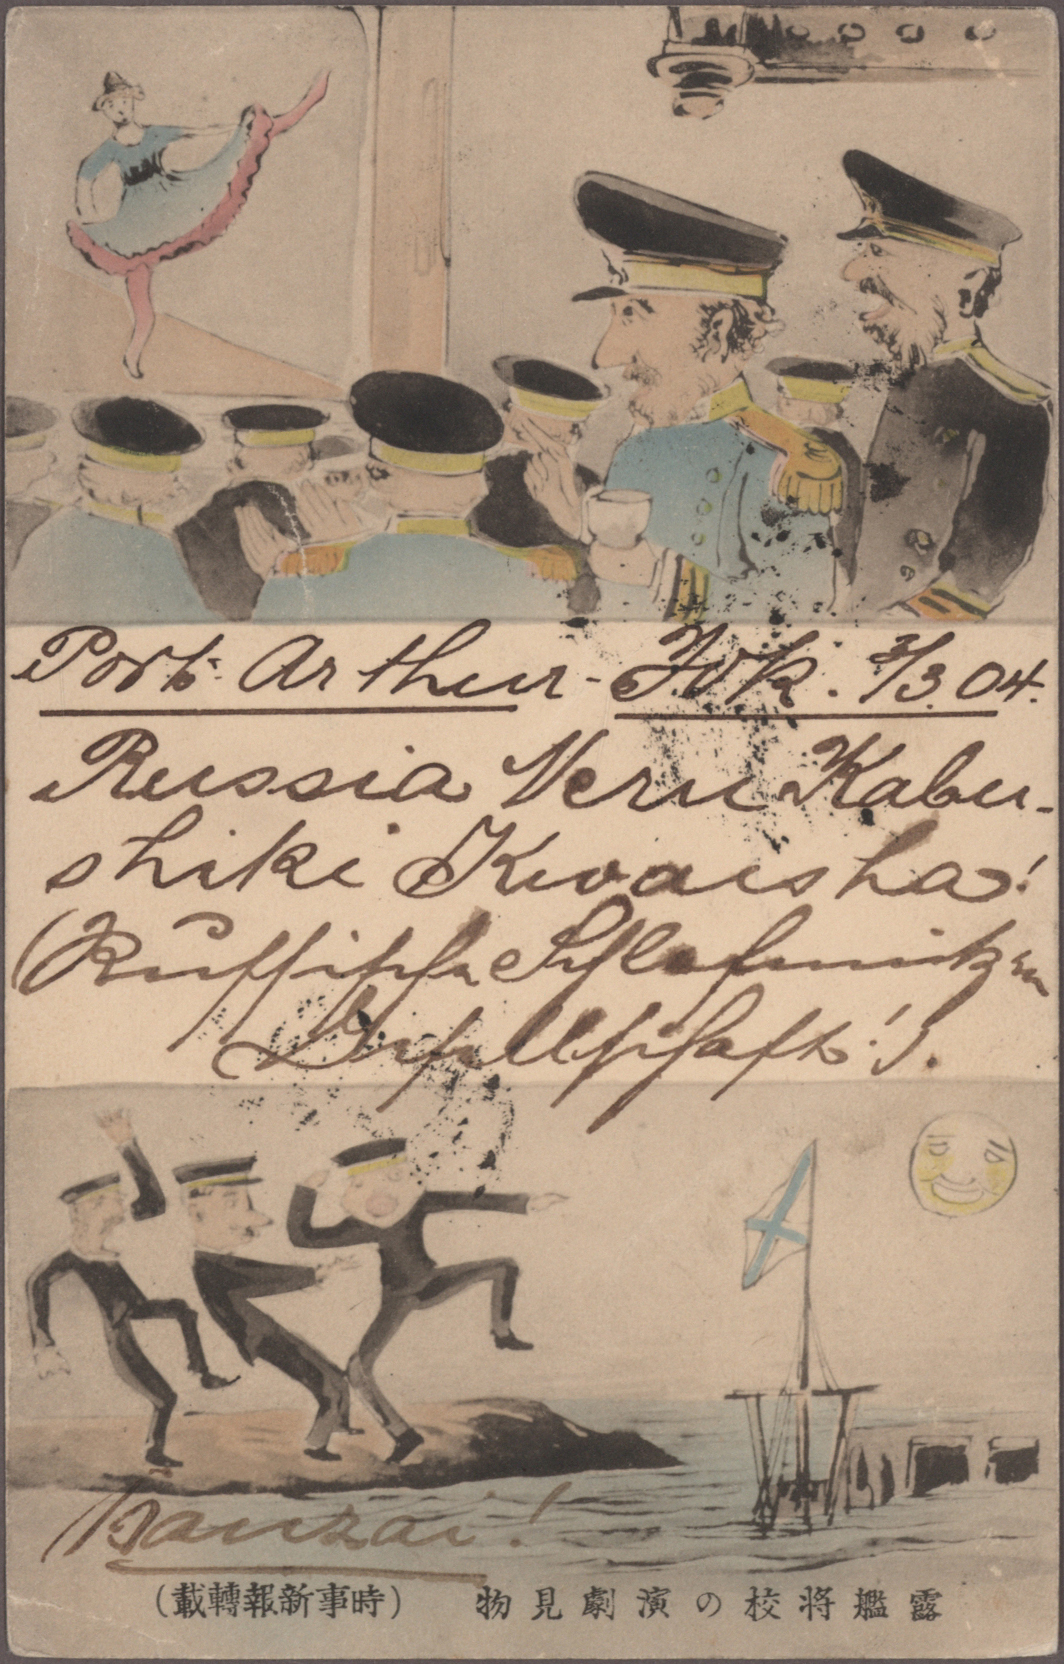 Port-Arthur - Yok. 3/3.04.
Russia Neru Kabu-
shiki Kwaisha!
(Russische Schlafmützen
Gesellschaft!).
Banzai!
露艦将校の演劇見物 (時事新報轉載)